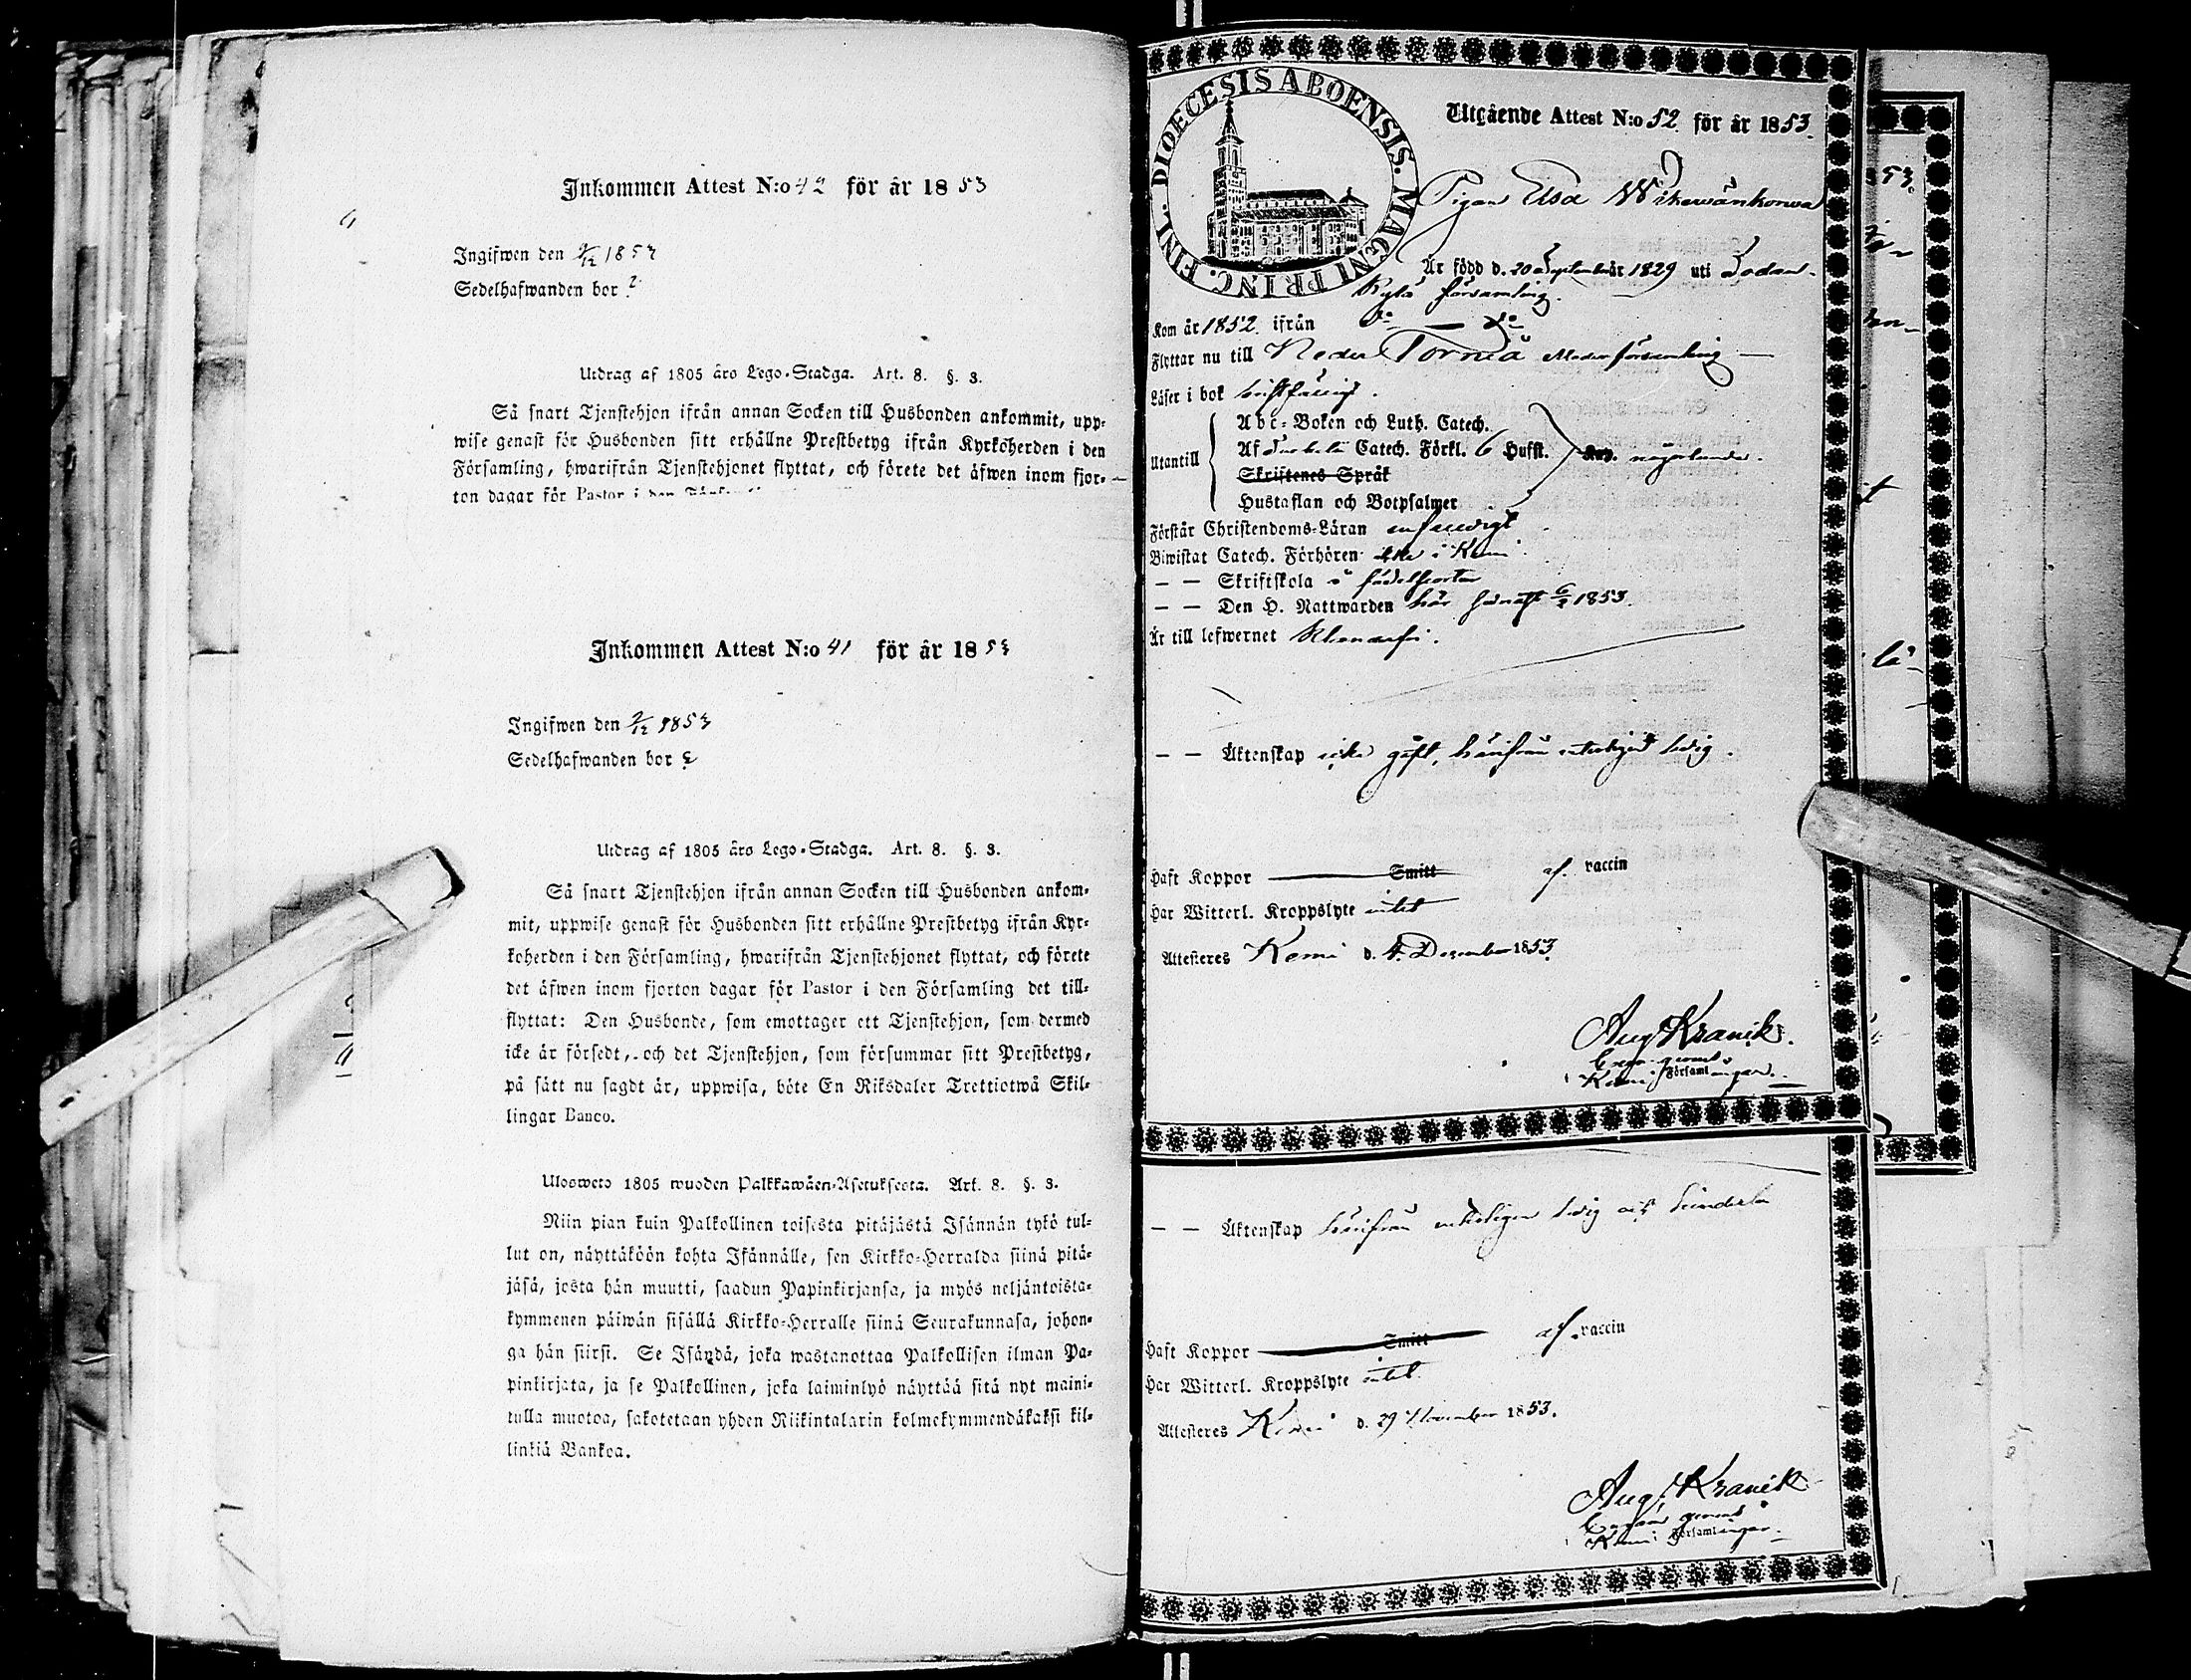 Inkommen Attest N:o 42 för år 1853
Ingifwen den 9/12 1853
Sedelhafwanden bor ?
Utdrag af 1805 års Lego-Stadga. Art. 8. §. 3.
Så snart Tjenstehjon ifrån annan Socken till Husbonden ankommit, upp-
wise genast för Husbonden sitt erhållne Prestbetyg ifrån Kyrkoherden i den
Församling, hwarifrån Tjenstehjonet flyttat, och förete det äfwen inom fjor-
ton dagar för Pastor i den
Inkommen Attest N:o 41 för år 1853
Ingifwen den 9/12 1853
Sedelhafwanden bor
Utdrag af 1805 års Lego-Stadga. Art. 8. §. 3.
Så snart Tjenstehjon ifrån annan Socken till Husbonden ankom-
mit, uppwise genast för Husbonden sitt erhållne Prestbetyg ifrån Kyr-
koherden i den Församling, hwarifrån Tjenstehjonet flyttat, och förete
det äfwen inom fjorton dagar för Pastor i den Församling det till-
flyttat: Den Husbonde, som emottager ett Tjenstehjon, som dermed
icke är försedt, och det Tjenstehjon, som försummar sitt Prestbetyg,
på sätt nu sagdt är, uppwisa, böte En Riksdaler Trettiotwå Skil-
lingar Banco.
Ulosweto 1805 wuoden Palkkawäen-Asetuksesta. Art. 8. §. 3.
Niin pian kuin Palkollinen toisesta pitäjästä Isännän tykö tul-
lut on, näyttäköön kohta Isännälle, sen Kirkko-Herralda siinä pitä-
jäsä, josta hän muutti, saadun Papinkirjansa, ja myös neljäntoista-
kymmenen päiwän sisällä Kirkko-Herralle siinä Seurakunnasa, johon-
ga hän siirsi. Se Isändä, joka wastanottaa Palkollisen ilman Pa-
pinkirjata, ja se Palkollinen, joka laiminlyö näyttää sitä nyt maini-
tulla muotoa, sakotetaan yhden Riikintalarin kolmekymmendäkaksi kil-
linkiä Bankoa.
DIOECESIS ABOENSIS. MAGNI PRINC. FINL.
Utgående Attest N:o 52 för år 1853.
Pigan Elsa
Är född d. 20 September år 1829 uti Sodan-
kylä församling.
Kom år 1852 ifrån do — do
Flyttar nu till Neder Torneå Moderförsamling —
Läser i bok
Utantill
Abc-Boken och Luth. Catech.
Af Catech. Förkl. 6 Hufst.
Skriftenes Språk
Hustaflan och Botpsalmer
någorlunda.
Förstår Christendoms-Läran enfaldigt
Biwistat Catech. Förhören icke i Kemi
— — Skriftskola å födelseorten
— — Den H. Nattwarden här senast 6/2 1853.
Är till lefwernet
— — Äktenskap icke gift, härifrån ledig.
Haft Koppor Smitt af vaccin
Har Witterl. Kroppslyte intet
Attesteres Kemi d. 4. December 1853.
Aug Kranck.
Kemi Församlingar.
— — Äktenskap härifrån ledig
Haft Koppor Smitt af vaccin
Har Witterl. Kroppslyte intet
Attesteres Kemi d. 29 November 1853.
Aug Kranck
Kemi Församlingar.